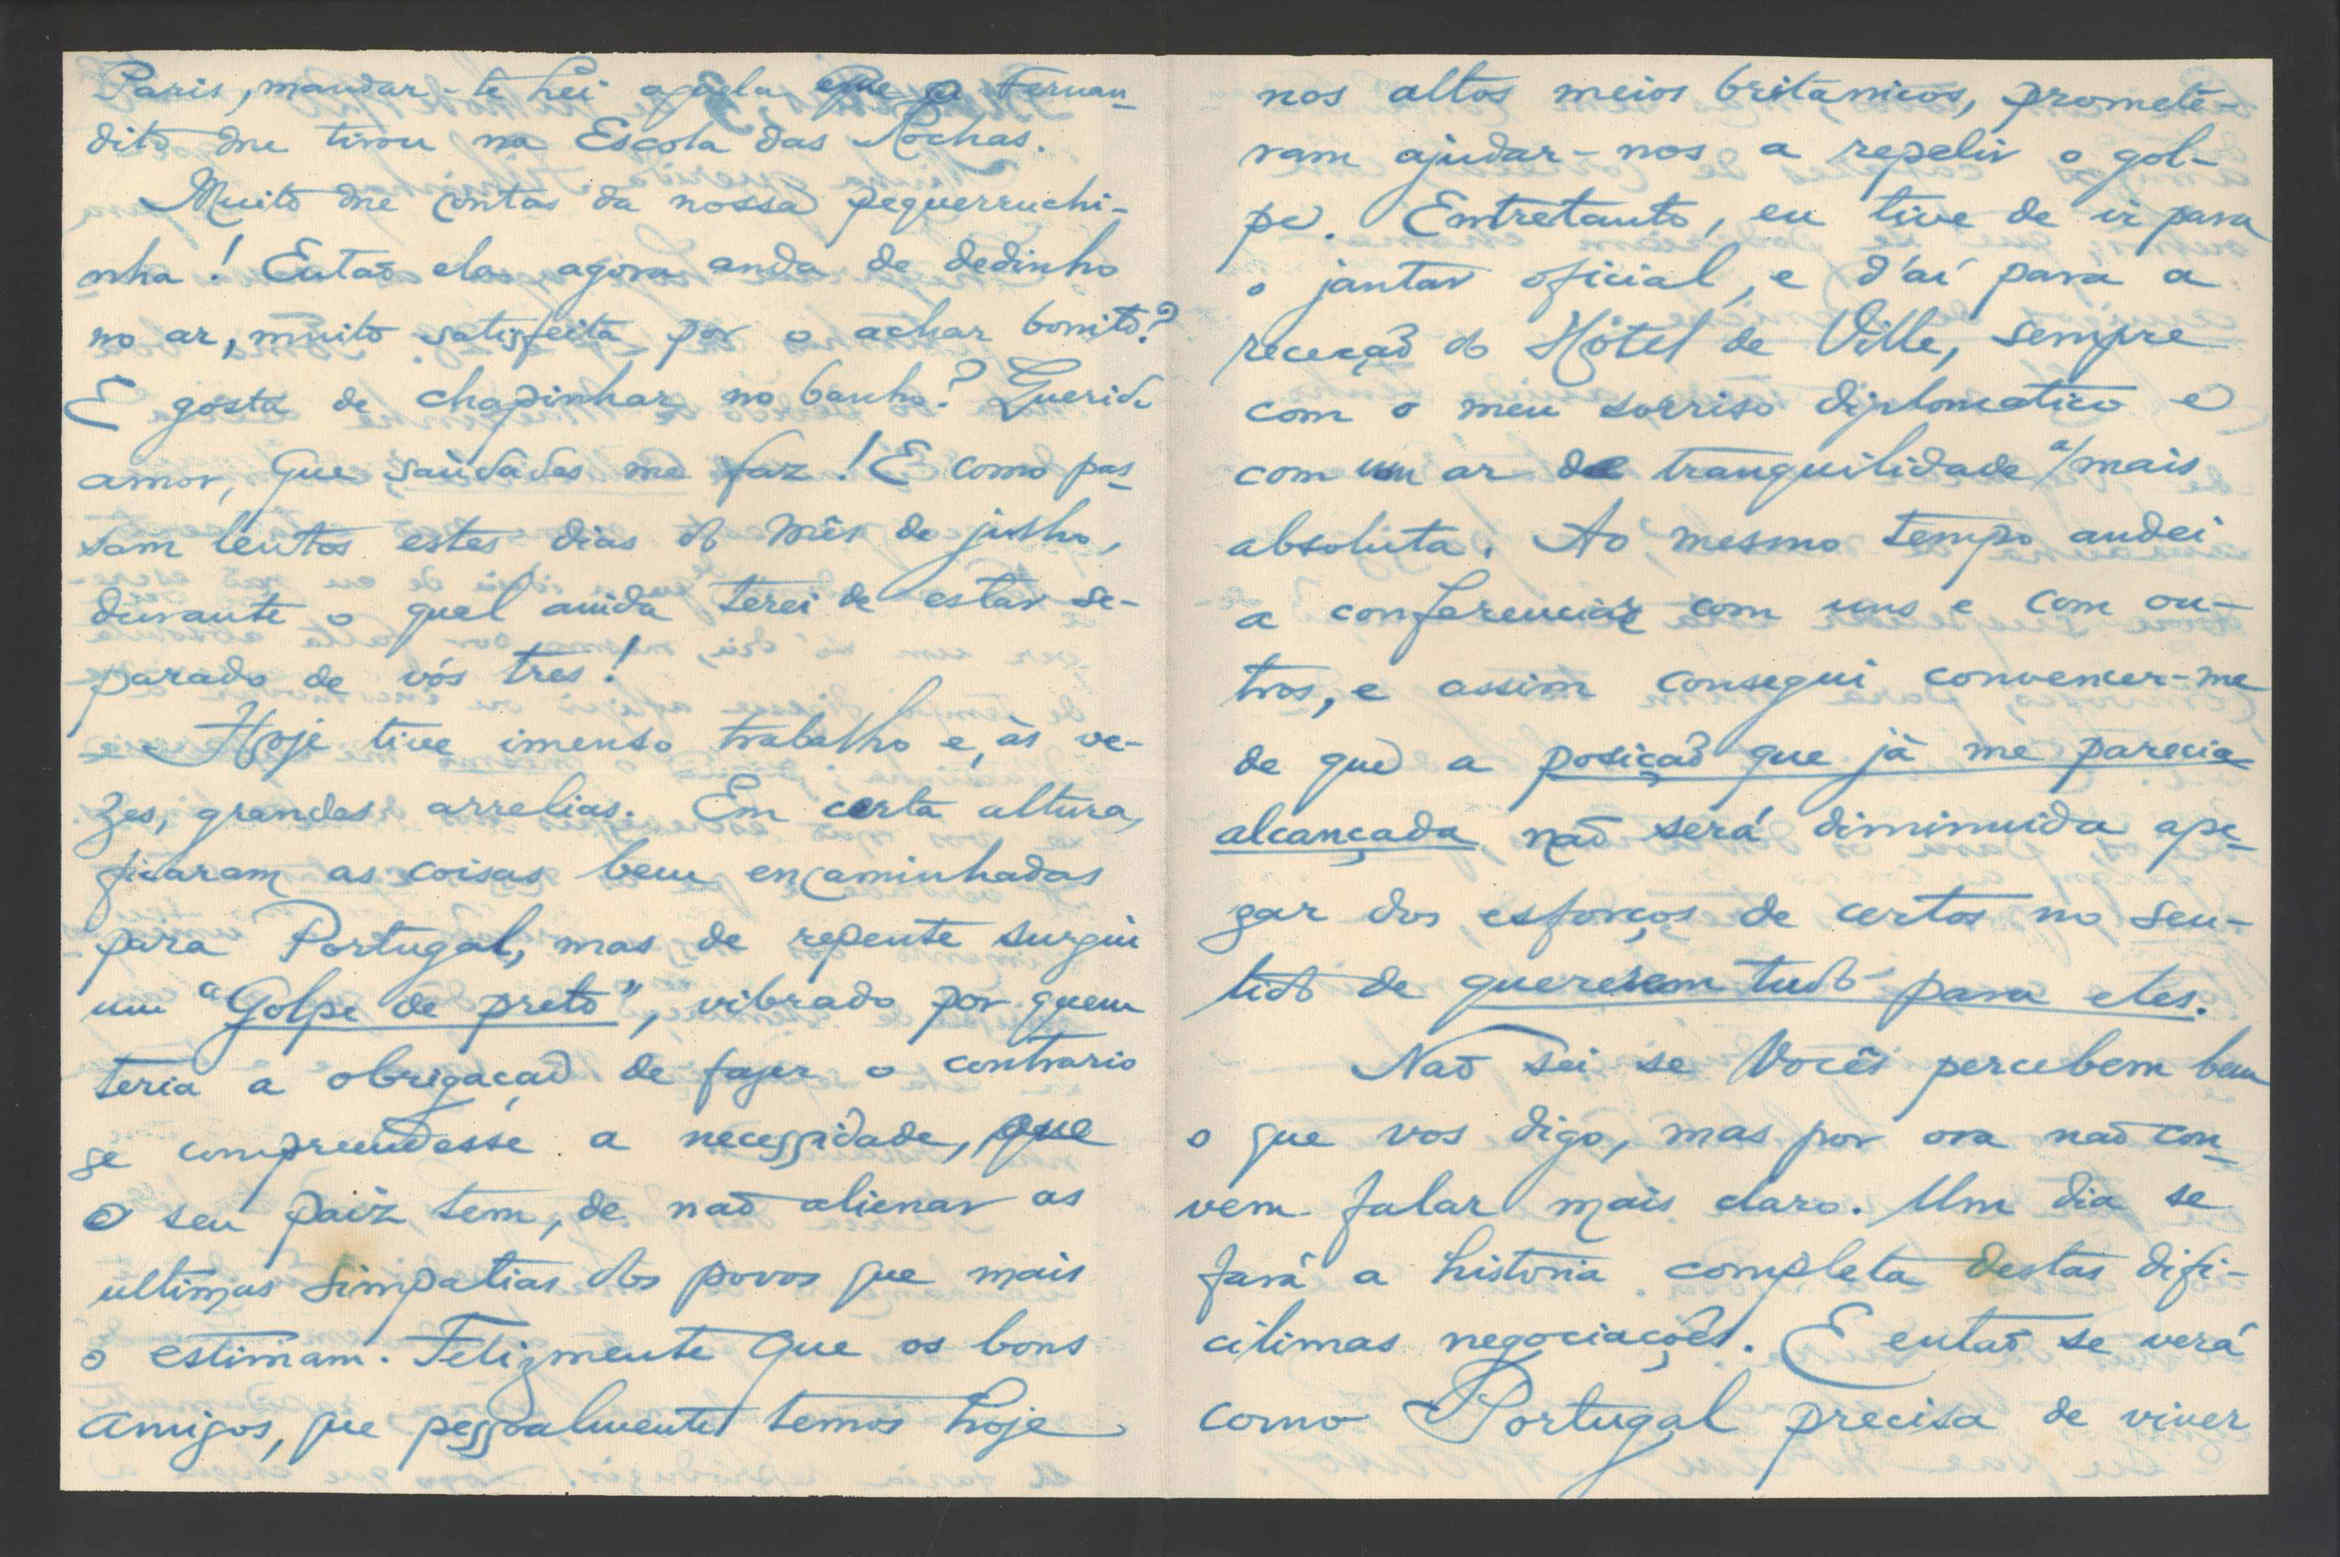 Paris, mandar-te hei aquela que o Fernan-
dito me tirou na Escola das Rochas.
Muito me contas da nossa pequerruchi-
nha! Entaõ ela agora anda de dedinho
no ar, muito satisfeita por o achar bonito?
E gosta de chapinhar no banho? Querido
amor, que saüdades me faz! E como pas-
sam lentos estes dias do mês de julho,
durante o qual ainda terei de estar se-
parado de vós tres!
Hoje tive imenso trabalho e, às ve-
zes, grandes arrelias. Em certa altura,
ficaram as coisas bem encaminhadas
para Portugal, mas de repente surgiu
um "Golpe de preto", vibrado por quem
teria a obrigaçaõ de fazer o contrario
se compreendesse a necessidade, que
o seu paiz tem, de naõ alienar as
ultimas simpatias dos povos que mais
o estimam. Felizmente que os bons
amigos, que pessoalmente temos hoje
nos altos meios britanicos, prometê-
ram ajudar-nos a repelir o gol-
pe. Entretanto, eu tive de ir para
o jantar oficial, e d'aí para a
receçaõ do Hôtel de Ville, sempre
com o meu sorriso diplomatico e
com um ar de tranquilidade a/mais
absoluta. Ao mesmo tempo andei
a conferenciar com uns e com ou-
tros, e assim consegui convencer-me
de que a posiçaõ que já me parecia
alcançada naõ será diminuida ape-
zar dos esforços de certos no sen-
tido de quererem tudo para eles.
Naõ sei se Vocês percebem bem
o que vos digo, mas por ora naõ con-
vem falar mais claro. Um dia se
fará a historia completa destas difi-
cilimas negociaçoẽs. E entaõ se verá
como Portugal precisa de viver